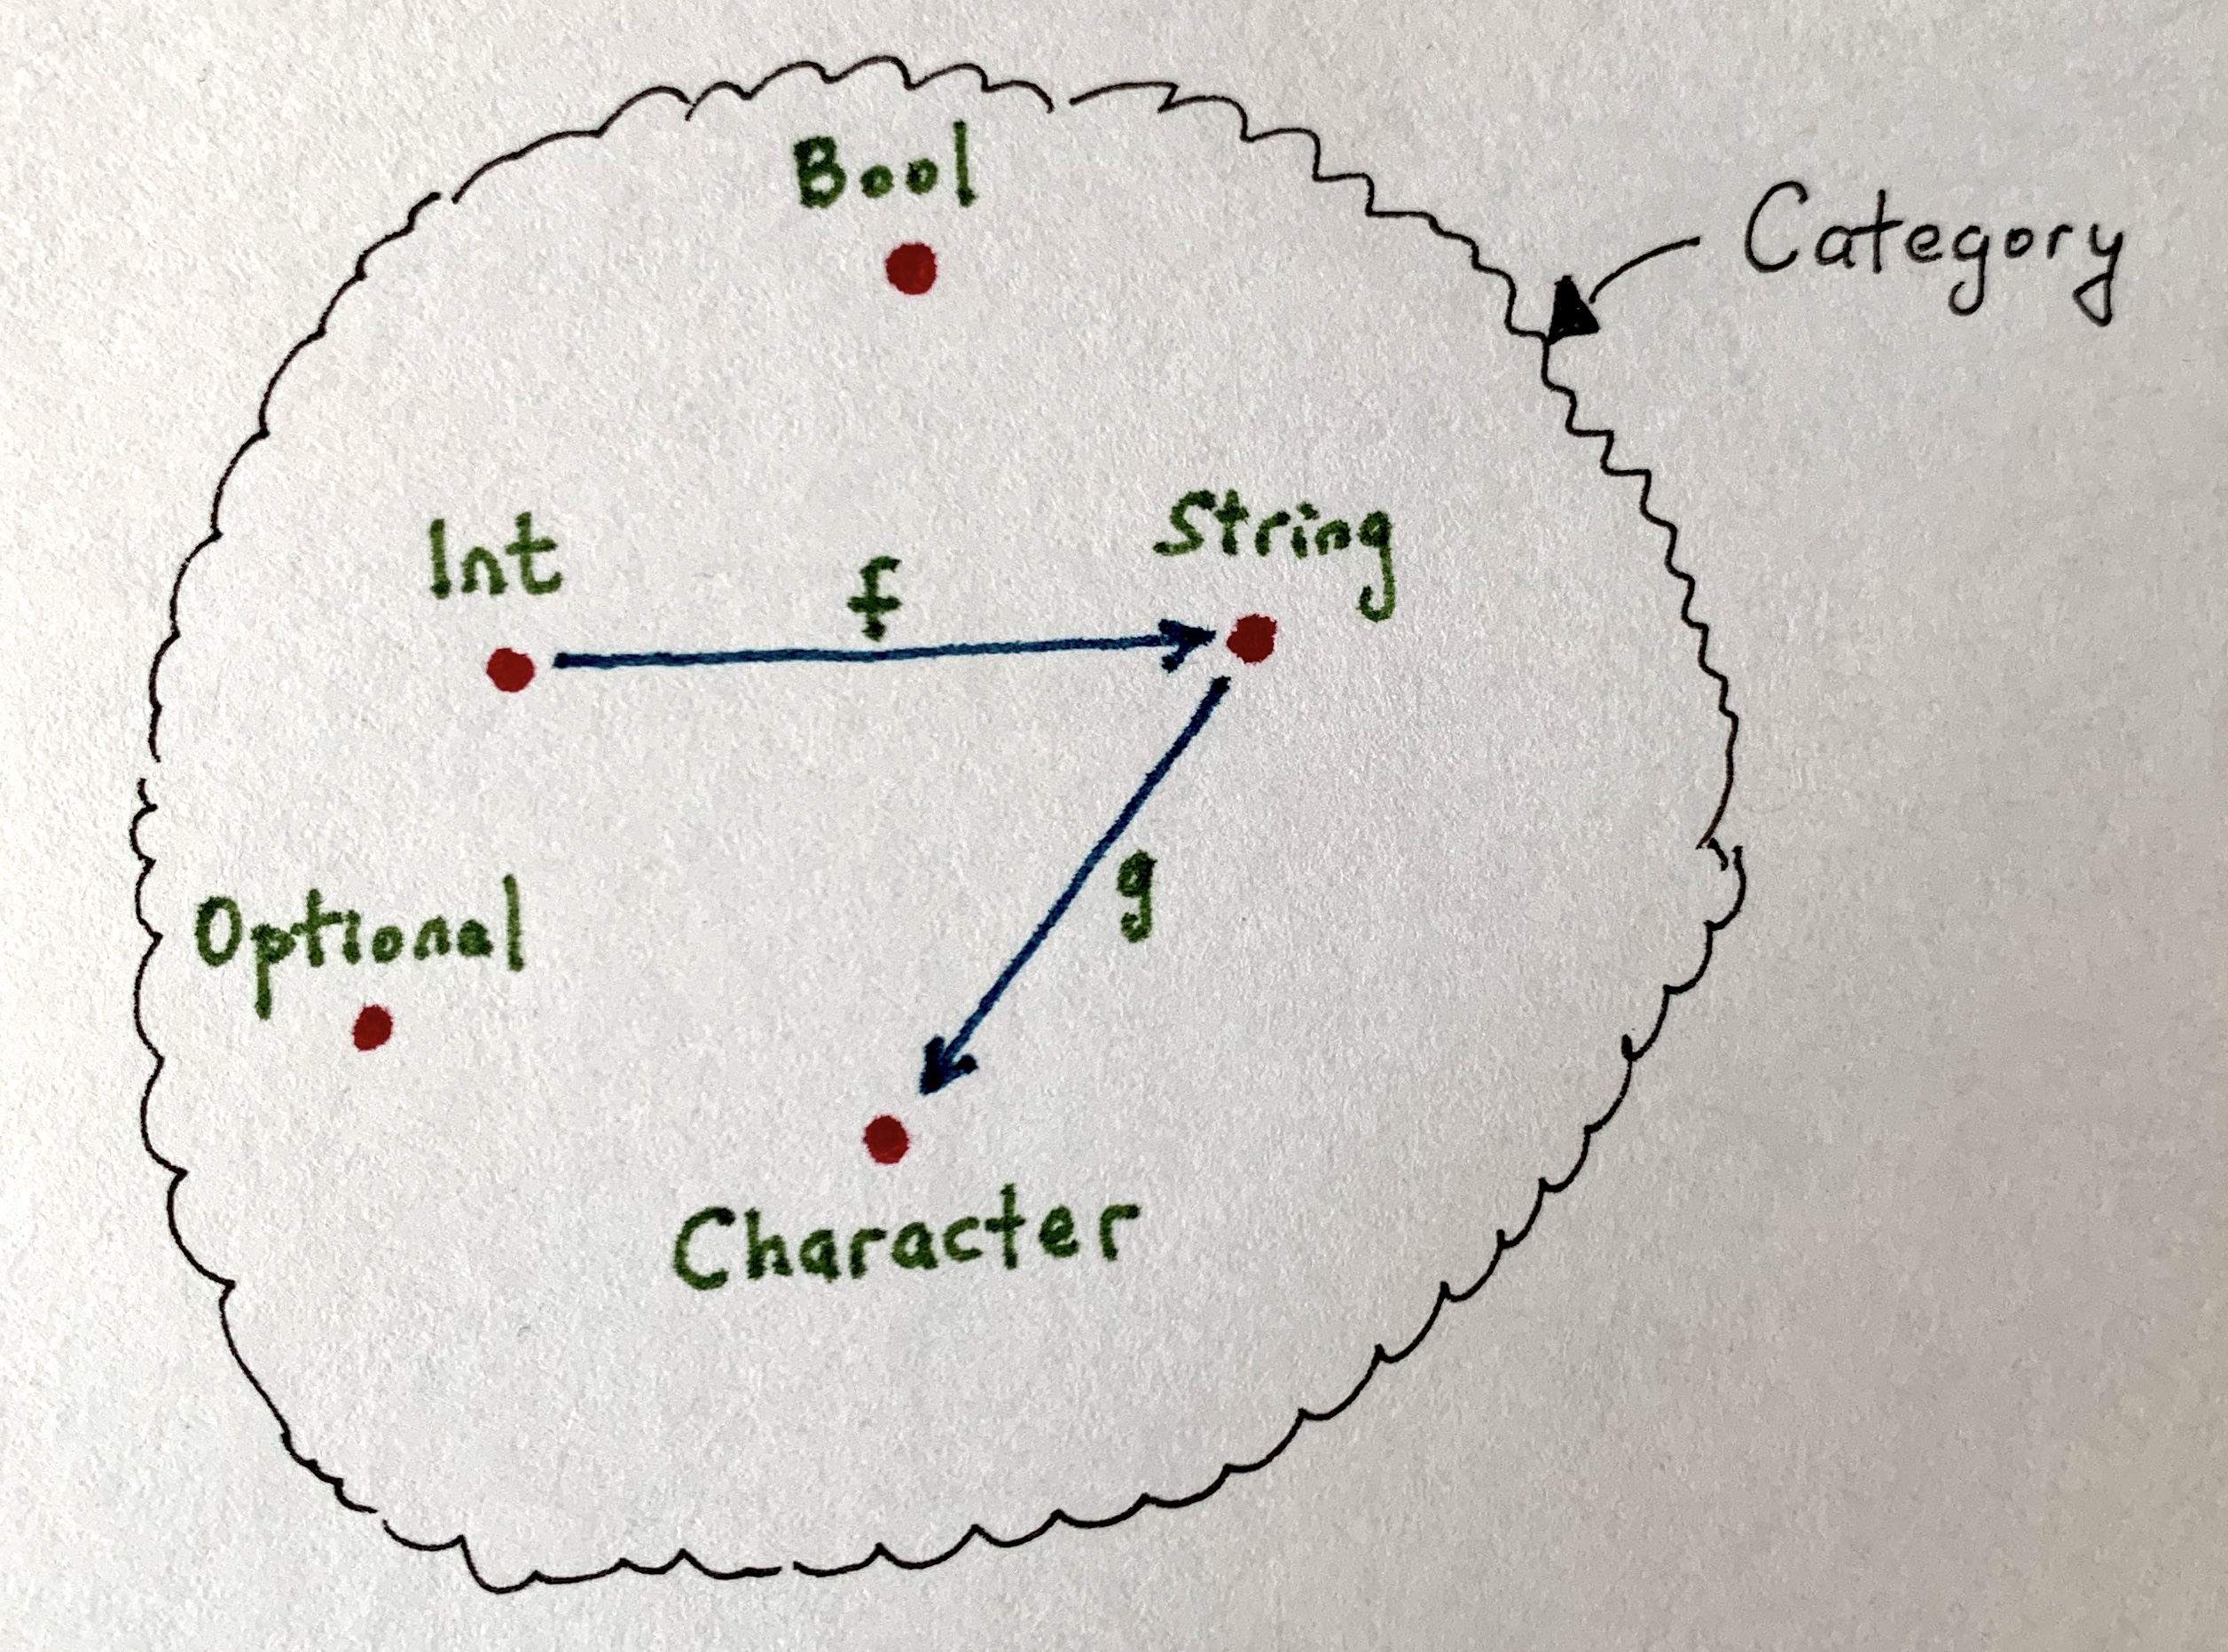 Bool
Category
Int
f
String
g
Optional
Character